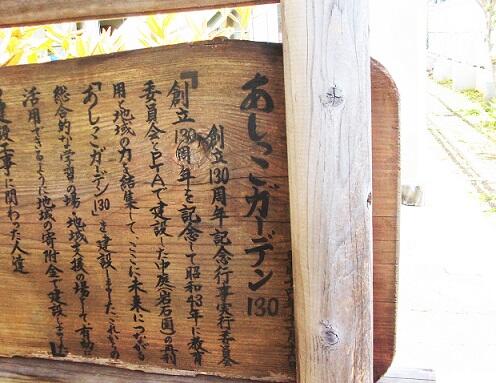 あしっこガーデン130
創立130周年記念行事実行委員会
『創立130周年を記念して昭和43年に教育
委員会とPTAで建設した中庭(岩石園)の再利
用と地域の力を結集して、ここに未来につながる
「あしっこガーデン130」を建設しました。これからの
総合的な学習の場・地域交援の場として有効に
活用できるように地域の寄附金で建設しました』
建設工事に関わった人達